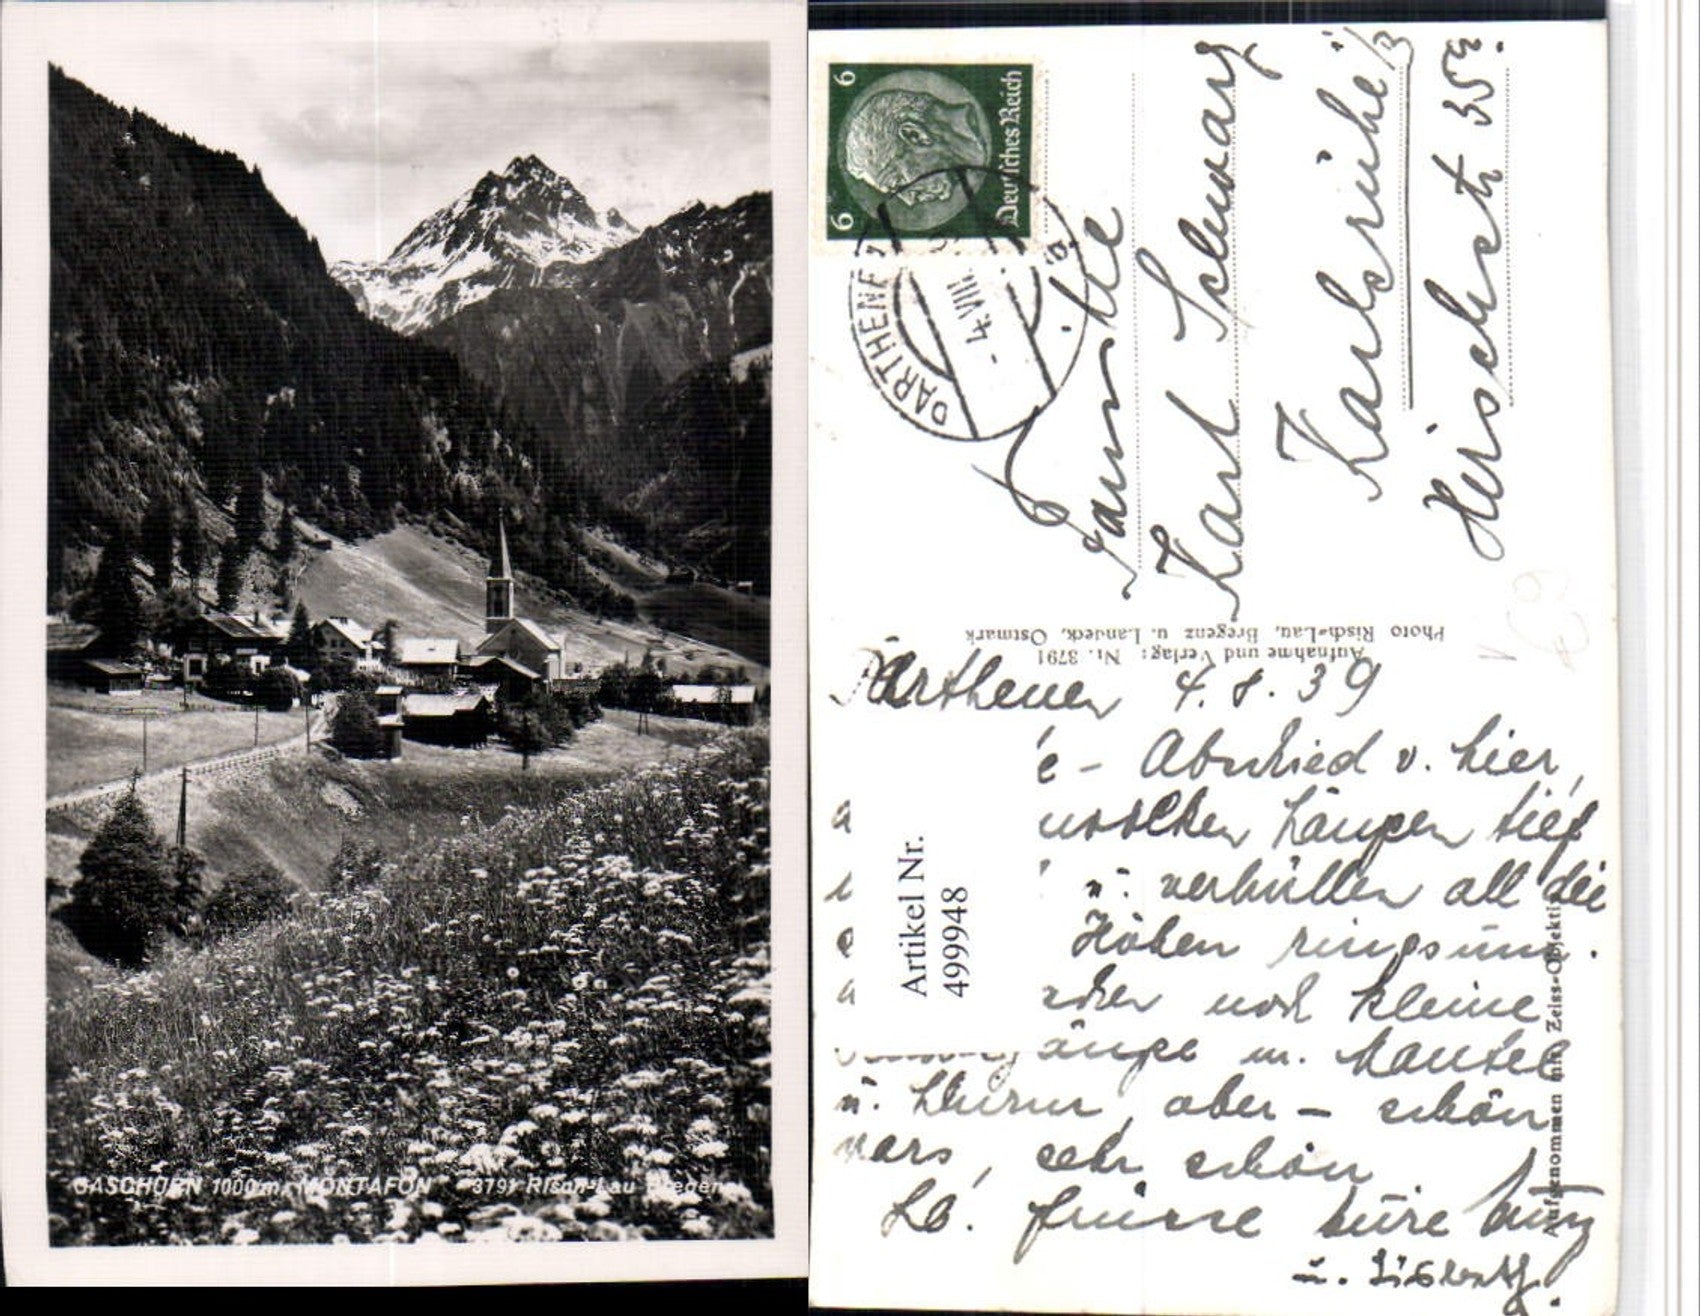 GASCHURN 1000 m. MONTAFON 3791 Risch-Lau Bregenz
6 Deutsches Reich 6
PARTHENEN
- 4. VIII.
Familie
Karl Schwarz
Karlsruhe /B
Hirschstr 35a.
Aufnahme und Verlag: Nr. 3791
Photo Risch-Lau, Bregenz u. Landeck, Ostmark
Parthenen 4. 8. 39
Abschied v. hier,
wolken hängen tief
u. verhüllen all die
Höhen ringsum.
noch kleine
gänge m. Mantel
u. Schirm, aber – schön
wars, sehr schön
Lb. Grüsse eure
u.
Artikel Nr.
499948
Aufgenommen mit Zeiss-Objektiv